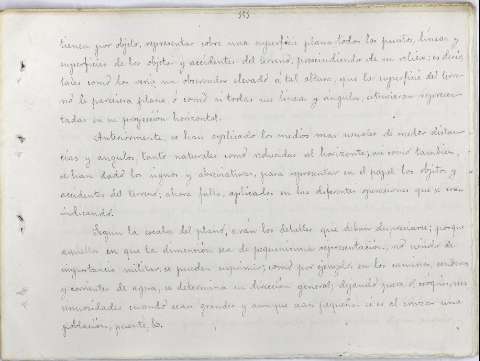 353
tienen por objeto, representar sobre una superficie plana todos los puntos, líneas y
superficies de los objetos y accidentes del terreno, prescindiendo de su relieve; es decir,
tales como los vería un observador elevado á tal altura, que la superficie del terre-
no le pareciera plana ó como si todas sus líneas y angulos, estuvieran represen-
tadas en su proyección horizontal.
Anteriormente, se han explicado los medios mas usuales de medir distan-
cias y angulos, tanto naturales como reducidas al horizonte; asi como tambien,
se han dado los signos y abreviaturas, para representar en el papel los objetos y
accidentes del terreno; ahora falta, aplicarlos en las diferentes operaciones que se irán
indicando.
Segun la escala del plano, serán los detalles que deban despreciarse; porque
aquellos en que la dimensión sea de pequeñisima representación, no siendo de
importancia militar, se pueden suprimir; como por ejemplo en los caminos, senderos
y corrientes de agua, se determina su dirección general; dejando para el croquis, sus
sinuosidades cuando sean grandes y aunque sean pequeñas si es al cruzar una
población, puente, &.